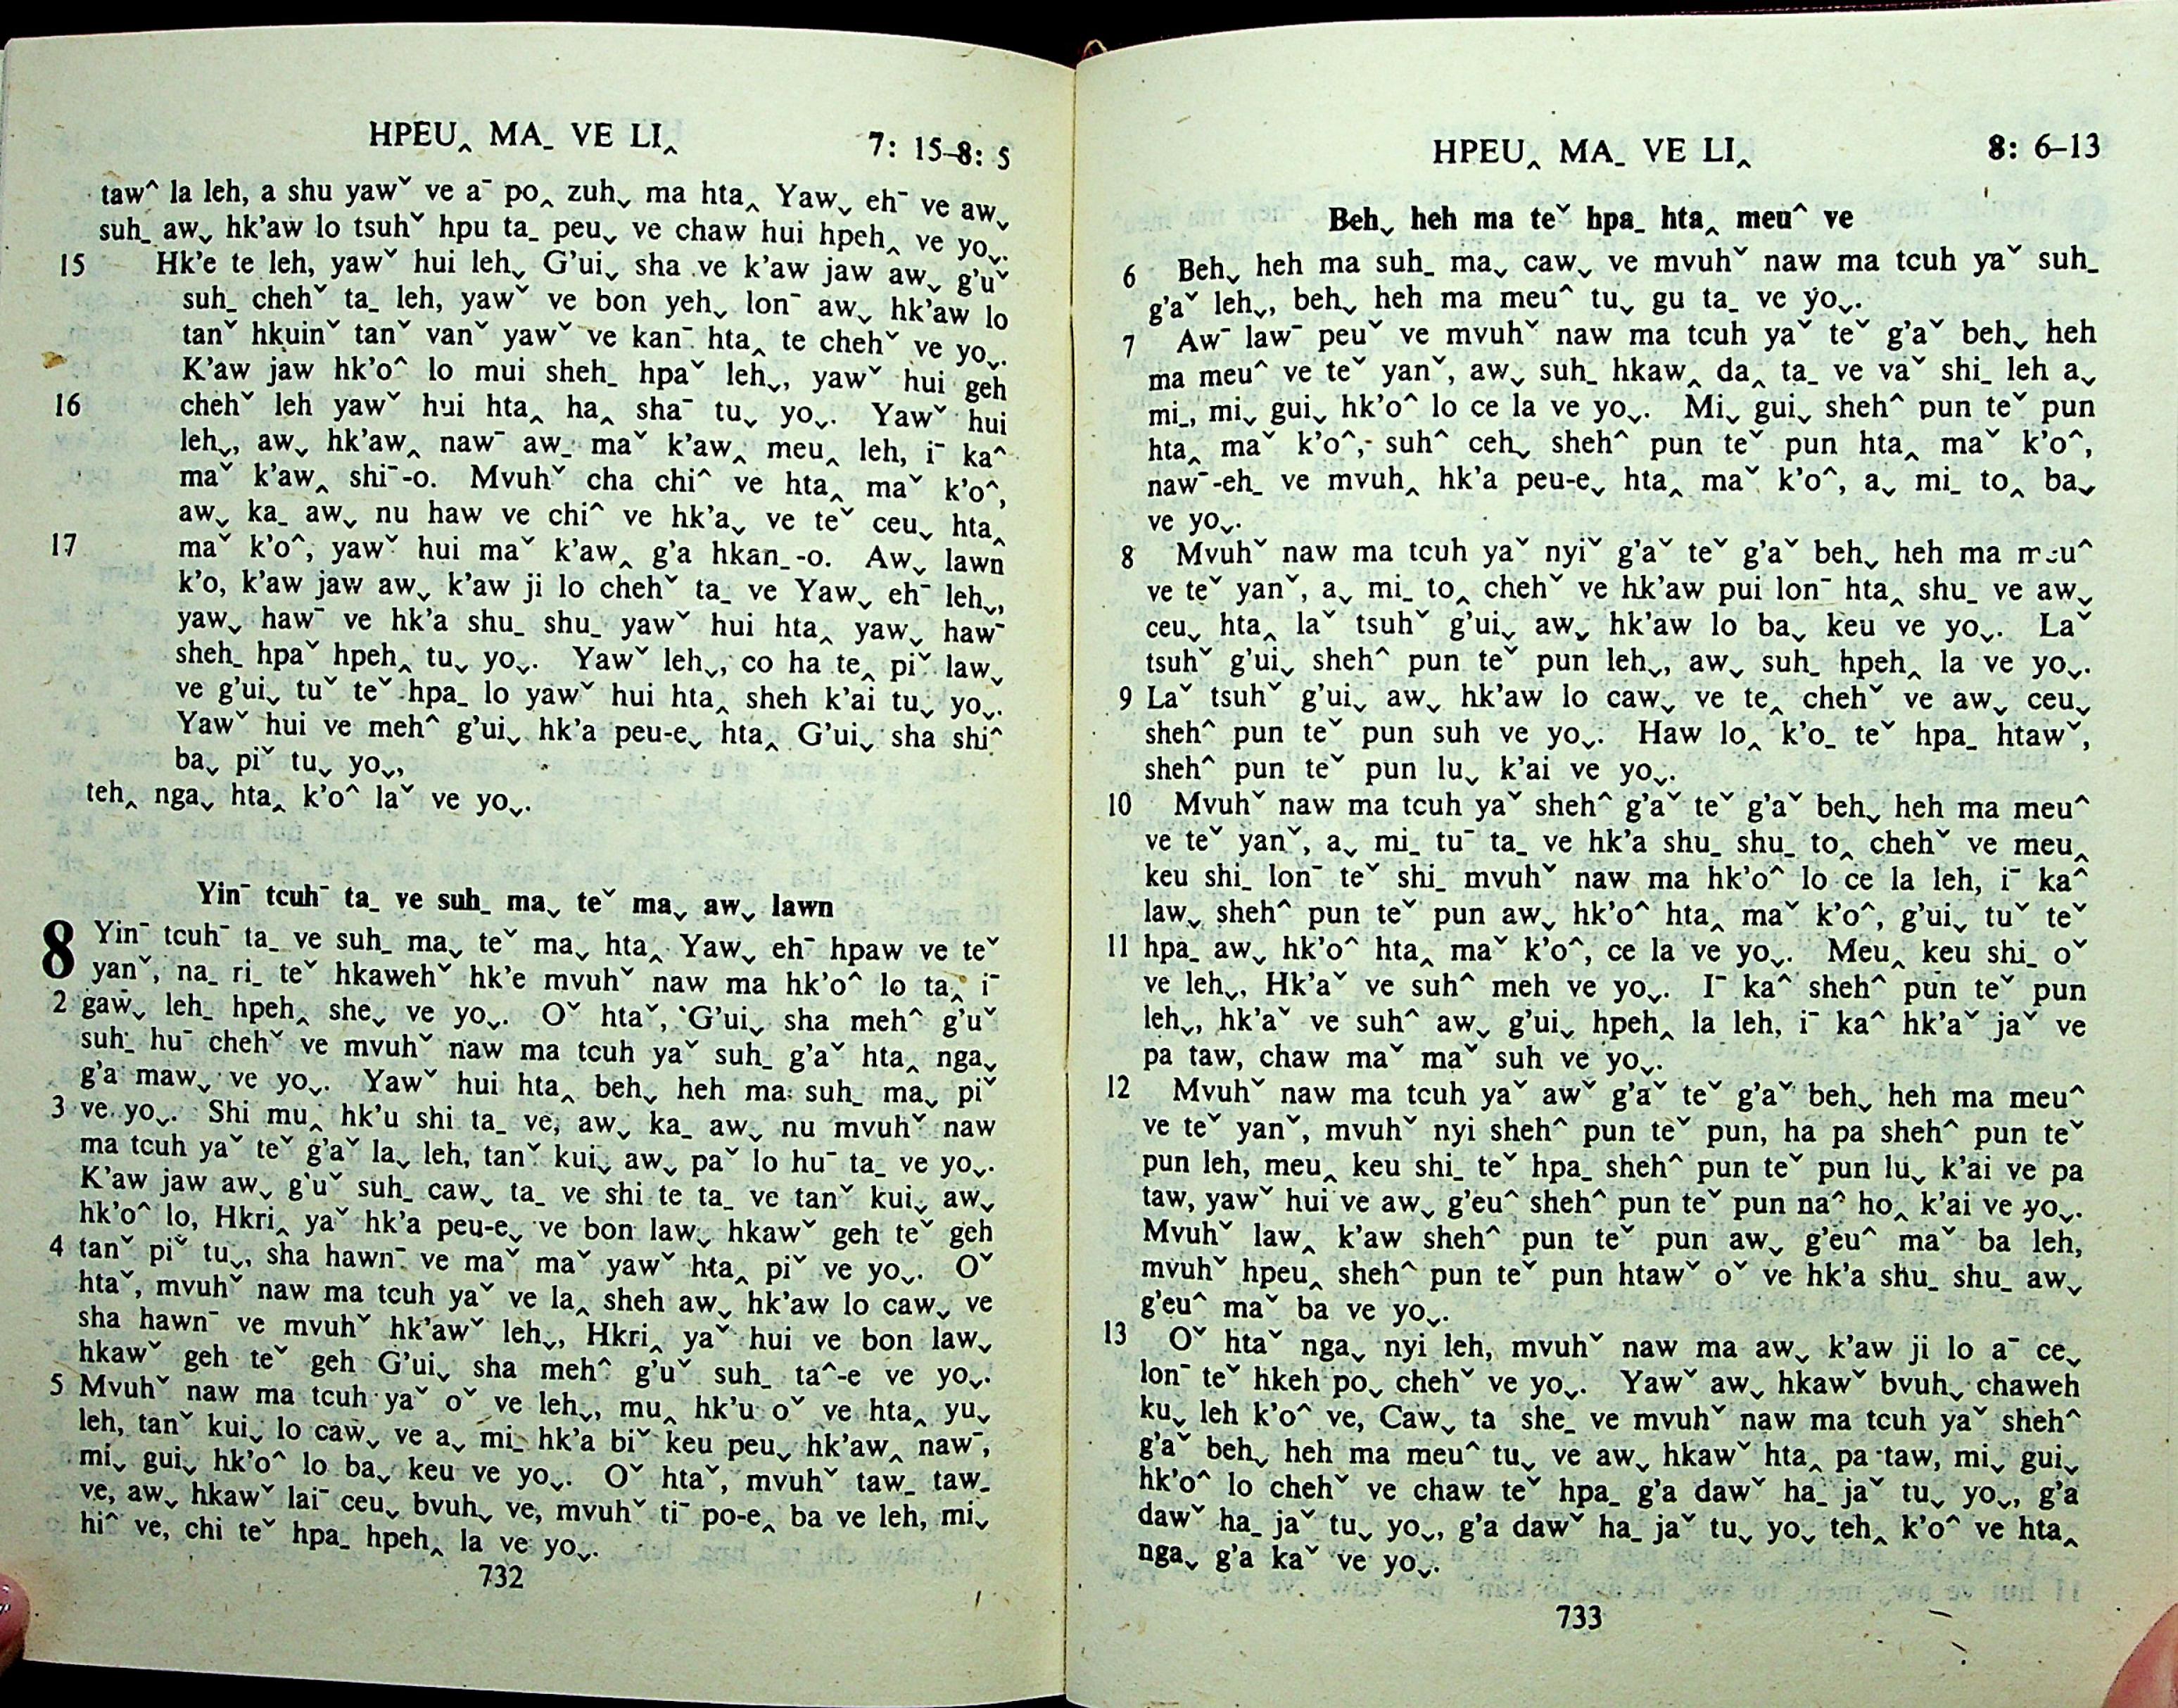 HPEU‸ MA_ VE LI‸ 7: 15–8: 5
taw^ la leh, a shu yawˇ ve a¯ po‸ zuhˬ ma hta‸ Yawˬ eh¯ ve awˬ
suh_ awˬ hk'aw lo tsuhˇ hpu ta_ peuˬ ve chaw hui hpeh‸ ve yoˬ.
15 Hk'e te leh, yawˇ hui lehˬ G'uiˬ sha ve k'aw jaw awˬ g'uˇ
suh_ chehˇ ta_ leh, yawˇ ve bon yehˬ lon¯ awˬ hk'aw lo
tanˇ hkuinˇ tanˇ vanˇ yawˇ ve kan¯ hta‸ te chehˇ ve yoˬ.
K'aw jaw hk'o^ lo mui sheh_ hpaˇ lehˬ, yawˇ hui geh
16 chehˇ leh yawˇ hui hta‸ ha‸ sha¯ tuˬ yoˬ. Yawˇ hui
lehˬ, awˬ hk'aw‸ naw¯ aw_ maˇ k'aw‸ meu‸ leh, i¯ ka^
maˇ k'aw‸ shi¯-o. Mvuhˇ cha chi^ ve hta‸ maˇ k'o^,
awˬ ka_ awˬ nu haw ve chi^ ve hk'aˬ ve teˇ ceuˬ hta‸
17 maˇ k'o^, yawˇ hui maˇ k'aw‸ g'a hkan_-o. Awˬ lawn
k'o, k'aw jaw awˬ k'aw ji lo chehˇ ta_ ve Yawˬ eh¯ lehˬ,
yawˬ haw¯ ve hk'a shu_ shu_ yawˇ hui hta‸ yawˬ haw¯
sheh_ hpaˇ hpeh‸ tuˬ yoˬ. Yawˇ lehˬ, co ha te‸ piˇ lawˬ
ve g'uiˬ tuˇ teˇ hpa_ lo yawˇ hui hta‸ sheh k'ai tuˬ yoˬ.
Yawˇ hui ve meh^ g'uiˬ hk'a peu-eˬ hta‸ G'uiˬ sha shi^
baˬ piˇ tuˬ yoˬ,
teh‸ ngaˬ hta‸ k'o^ laˇ ve yoˬ.
Yin¯ tcuh¯ ta_ ve suh_ maˬ teˇ maˬ awˬ lawn
8 Yin¯ tcuh¯ ta_ ve suh_ maˬ teˇ maˬ hta‸ Yawˬ eh¯ hpaw ve teˇ
yanˇ, na_ ri_ teˇ hkawehˇ hk'e mvuhˇ naw ma hk'o^ lo ta‸ i¯
2 gawˬ leh_ hpeh‸ sheˬ ve yoˬ. Oˇ htaˇ, G'uiˬ sha meh^ g'uˇ
suh_ hu¯ chehˇ ve mvuhˇ naw ma tcuh yaˇ suh_ g'aˇ hta‸ ngaˬ
g'a mawˬ ve yoˬ. Yawˇ hui hta‸ behˬ heh ma suh_ maˬ piˇ
3 ve yoˬ. Shi mu‸ hk'u shi ta_ ve, awˬ ka_ awˬ nu mvuhˇ naw
ma tcuh yaˇ teˇ g'aˇ laˬ leh, tanˇ kuiˬ awˬ paˇ lo hu¯ ta_ ve yoˬ.
K'aw jaw awˬ g'uˇ suh_ cawˬ ta_ ve shi te ta_ ve tanˇ kuiˬ awˬ
hk'o^ lo, Hkri‸ yaˇ hk'a peu-eˬ ve bon lawˬ hkawˇ geh teˇ geh
4 tanˇ piˇ tuˬ, sha hawn¯ ve maˇ maˇ yawˇ hta‸ piˇ ve yoˬ. Oˇ
htaˇ, mvuhˇ naw ma tcuh yaˇ ve la‸ sheh awˬ hk'aw lo cawˬ ve
sha hawn¯ ve mvuhˇ hk'awˇ lehˬ, Hkri‸ yaˇ hui ve bon lawˬ
hkawˇ geh teˇ geh G'uiˬ sha meh^ g'uˇ suh_ ta^-e ve yoˬ.
5 Mvuhˇ naw ma tcuh yaˇ oˇ ve lehˬ, mu‸ hk'u oˇ ve hta‸ yuˬ
leh, tanˇ kuiˬ lo cawˬ ve aˬ mi_ hk'a biˇ keu peuˬ hk'aw‸ naw¯,
miˬ guiˬ hk'o^ lo baˬ keu ve yoˬ. Oˇ htaˇ, mvuhˇ taw_ taw_
ve, awˬ hkawˇ lai¯ ceuˬ bvuhˬ ve, mvuhˇ ti¯ po-e‸ ba ve leh, miˬ
hi^ ve, chi teˇ hpa_ hpeh‸ la ve yoˬ.
732
HPEU‸ MA_ VE LI‸ 8: 6–13
Behˬ heh ma teˇ hpa_ hta‸ meu^ ve
6 Behˬ heh ma suh_ maˬ cawˬ ve mvuhˇ naw ma tcuh yaˇ suh_
g'aˇ lehˬ, behˬ heh ma meu^ tuˬ gu ta_ ve yoˬ.
7 Aw¯ law¯ peuˇ ve mvuhˇ naw ma tcuh yaˇ teˇ g'aˇ behˬ heh
ma meu^ ve teˇ yanˇ, awˬ suh_ hkaw‸ da‸ ta_ ve vaˇ shi_ leh aˬ
mi_, miˬ guiˬ hk'o^ lo ce la ve yoˬ. Miˬ guiˬ sheh^ pun teˇ pun
hta‸ maˇ k'o^, suh^ cehˬ sheh^ pun teˇ pun hta‸ maˇ k'o^,
naw¯-eh_ ve mvuh‸ hk'a peu-eˬ hta‸ maˇ k'o^, aˬ mi_ to‸ baˬ
ve yoˬ.
8 Mvuhˇ naw ma tcuh yaˇ nyiˇ g'aˇ teˇ g'aˇ behˬ heh ma meu^
ve teˇ yanˇ, aˬ mi_ to‸ chehˇ ve hk'aw pui lon¯ hta‸ shu_ ve awˬ
ceuˬ hta‸ laˇ tsuhˇ g'uiˬ awˬ hk'aw lo baˬ keu ve yoˬ. Laˇ
tsuhˇ g'uiˬ sheh^ pun teˇ pun lehˬ, awˬ suh_ hpeh‸ la ve yoˬ.
9 Laˇ tsuhˇ g'uiˬ awˬ hk'aw lo cawˬ ve te‸ chehˇ ve awˬ ceuˬ
sheh^ pun teˇ pun suh ve yoˬ. Haw lo‸ k'o_ teˇ hpa_ htawˇ,
sheh^ pun teˇ pun luˬ k'ai ve yoˬ.
10 Mvuhˇ naw ma tcuh yaˇ sheh^ g'aˇ teˇ g'aˇ behˬ heh ma meu^
ve teˇ yanˇ, aˬ mi_ tu¯ ta_ ve hk'a shu_ shu_ to‸ chehˇ ve meu‸
keu shi_ lon¯ teˇ shi_ mvuhˇ naw ma hk'o^ lo ce la leh, i¯ ka^
lawˬ sheh^ pun teˇ pun awˬ hk'o^ hta‸ maˇ k'o^, g'uiˬ tuˇ teˇ
11 hpa_ awˬ hk'o^ hta‸ maˇ k'o^, ce la ve yoˬ. Meu‸ keu shi_ oˇ
ve lehˬ, Hk'aˇ ve suh^ meh ve yoˬ. I¯ ka^ sheh^ pun teˇ pun
lehˬ, hk'aˇ ve suh^ awˬ g'uiˬ hpeh‸ la leh, i¯ ka^ hk'aˇ jaˇ ve
pa taw, chaw maˇ maˇ suh ve yoˬ.
12 Mvuhˇ naw ma tcuh yaˇ awˇ g'aˇ teˇ g'aˇ behˬ heh ma meu^
ve teˇ yanˇ, mvuhˇ nyi sheh^ pun teˇ pun, ha pa sheh^ pun teˇ
pun leh, meu‸ keu shi_ teˇ hpa_ sheh^ pun teˇ pun luˬ k'ai ve pa
taw, yawˇ hui ve awˬ g'eu^ sheh^ pun teˇ pun na^ ho‸ k'ai ve yoˬ.
Mvuhˇ law‸ k'aw sheh^ pun teˇ pun awˬ g'eu^ maˇ ba leh,
mvuhˇ hpeu‸ sheh^ pun teˇ pun htawˇ oˇ ve hk'a shu_ shu_ awˬ
g'eu^ maˇ ba ve yoˬ.
13 Oˇ htaˇ ngaˬ nyi leh, mvuhˇ naw ma awˬ k'aw ji lo a¯ ceˬ
lon¯ teˇ hkeh poˬ chehˇ ve yoˬ. Yawˇ awˬ hkawˇ bvuhˬ chaweh
kuˬ leh k'o^ ve, Cawˬ ta she_ ve mvuhˇ naw ma tcuh yaˇ sheh^
g'aˇ behˬ heh ma meu^ tuˬ ve awˬ hkawˇ hta‸ pa taw, miˬ guiˬ
hk'o^ lo chehˇ ve chaw teˇ hpa_ g'a dawˇ ha_ jaˇ tuˬ yoˬ, g'a
dawˇ ha_ jaˇ tuˬ yoˬ, g'a dawˇ ha_ jaˇ tuˬ yoˬ teh‸ k'o^ ve hta‸
ngaˬ g'a kaˇ ve yoˬ.
733